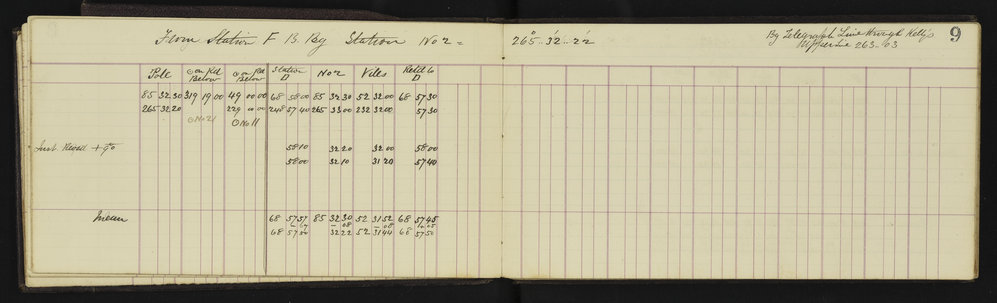 From Station F B. By Station No 2 = 265° 32' 22
By Telegraph Line through Kelly's
263-03
9
Pole ⊙ on Rd Below ⊙ on Rd Below Station D No 2 Vites Retd to D
85 32 30 319 19 00 49 00 00 68 58 00 85 32 30 52 32 00 68 57 30
265 32 20 229 00 00 248 57 40 265 33 00 232 32 00 57 30
⊙ No 21 ⊙ No 11
Inst 58 10 32 20 32 00 58 00
58 00 32 10 31 20 57 40
mean 68 57 57 85 32 30 52 31 52 68 57 45
- 07 - 08 - 08 + 05
68 57 50 32 22 52 31 44 68 57 50